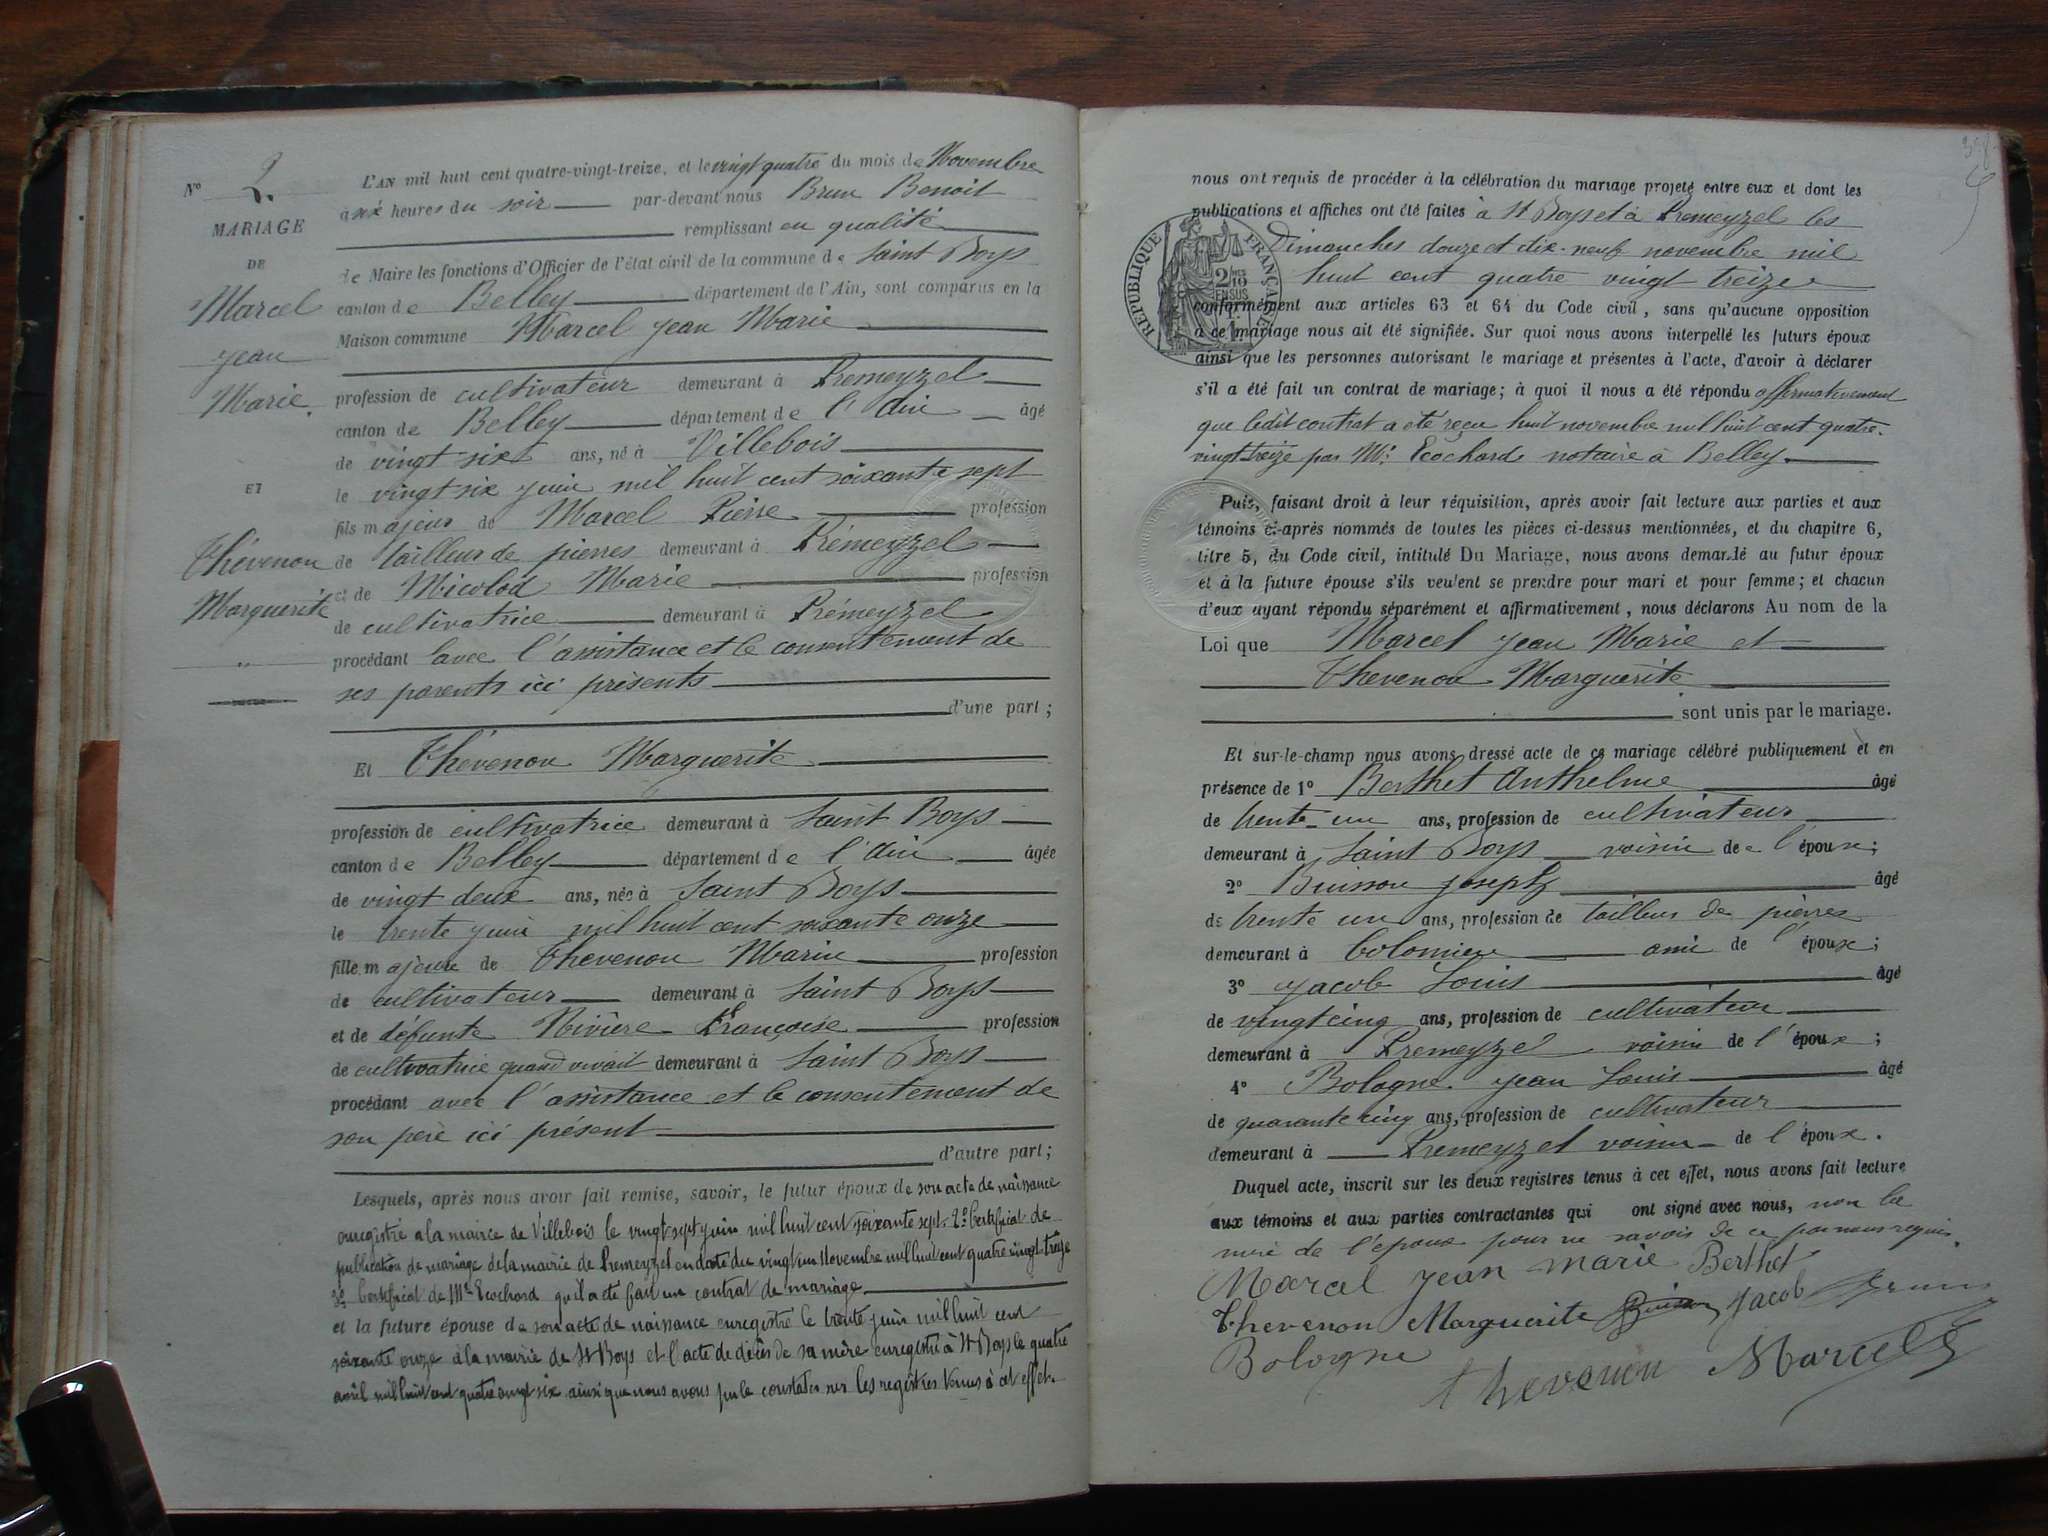 N° 2.
MARIAGE
DE
Marcel
Jean
Marie.
ET
Thévenon
Marguerite
L'AN mil huit cent quatre-vingt-treize, et le vingt quatre du mois de Novembre
à six heures du soir par-devant nous Brun Benoit
remplissant en qualité
de Maire les fonctions d'Officier de l'état civil de la commune de Saint Boys
canton de Belley département de l'Ain, sont comparus en la
Maison commune Marcel Jean Marie
profession de cultivateur demeurant à Premeyzel
canton de Belley département de l'Ain âgé
de vingt six ans, né à Villebois
le vingt six juin mil huit cent soixante sept
fils majeur de Marcel Pierre profession
de tailleur de pierres demeurant à Prémeyzel
et de Micolod Marie profession
de cultivatrice demeurant à Prémeyzel
procédant avec l'assistance et le consentement de
ses parents ici présents
d'une part;
Et Thévenon Marguerite
profession de cultivatrice demeurant à Saint Boys
canton de Belley département de l'Ain âgée
de vingt deux ans, née à Saint Boys
le trente juin mil huit cent soixante onze
fille majeure de Thevenon Marin profession
de cultivateur demeurant à Saint Boys
et de défunte Rivière Françoise profession
de cultivatrice quand vivait demeurant à Saint Boys
procédant avec l'assistance et le consentement de
son père ici présent
d'autre part;
Lesquels, après nous avoir fait remise, savoir, le futur époux de son acte de naissance
enregistré a la mairie de Villebois le vingt sept juin mil huit cent soixante sept. 2° Certificat de
publication de mariage de la mairie de Premeyzel en date du vingt un Novembre mil huit cent quatre vingt treize
3° Certificat de Me Ecochard qu'il a été fait un contrat de mariage
et la future épouse de son acte de naissance enregistré le trente juin mil huit cent
soixante onze à la mairie de St Boys et l'acte de décès de sa mère enregistré à St Boys le quatre
avril mil huit cent quatre vingt six ainsi que nous avons pu le constater sur les registres tenus à cet effet.
nous ont requis de procéder à la célébration du mariage projeté entre eux et dont les
publications et affiches ont été faites à St Boys et à Premeyzel les
Dimanches douze et dix-neuf novembre mil
huit cent quatre vingt treize
RÉPUBLIQUE FRANÇAISE
2/10 EN SUS
conformément aux articles 63 et 64 du Code civil, sans qu'aucune opposition
à ce mariage nous ait été signifiée. Sur quoi nous avons interpellé les futurs époux
ainsi que les personnes autorisant le mariage et présentes à l'acte, d'avoir à déclarer
s'il a été fait un contrat de mariage; à quoi il nous a été répondu affirmativement
que ledit contrat a été reçu huit novembre mil huit cent quatre-
vingt treize par Me Ecochard notaire à Belley.
Puis, faisant droit à leur réquisition, après avoir fait lecture aux parties et aux
témoins ci-après nommés de toutes les pièces ci-dessus mentionnées, et du chapitre 6,
titre 5, du Code civil, intitulé Du Mariage, nous avons demandé au futur époux
et à la future épouse s'ils veulent se prendre pour mari et pour femme; et chacun
d'eux ayant répondu séparément et affirmativement, nous déclarons Au nom de la
Loi que Marcel Jean Marie et
Thevenon Marguerite
sont unis par le mariage.
Et sur-le-champ nous avons dressé acte de ce mariage célébré publiquement et en
présence de 1° Berthet Anthelme âgé
de trente-un ans, profession de cultivateur
demeurant à Saint Boys voisin de l'épouse;
2° Buisson Joseph âgé
de trente un ans, profession de tailleur de pierres
demeurant à Colomieu ami de l'époux;
3° Jacob Louis âgé
de vingt cinq ans, profession de cultivateur
demeurant à Premeyzel voisin de l'époux;
4° Bologne Jean Louis âgé
de quarante cinq ans, profession de cultivateur
demeurant à Premeyzel voisin de l'époux.
Duquel acte, inscrit sur les deux registres tenus à cet effet, nous avons fait lecture
aux témoins et aux parties contractantes qui ont signé avec nous, non la
mère de l'époux pour ne savoir de ce par nous requis.
Marcel Jean Marie Berthet
Thevenon Marguerite Buisson Jacob Brun
Bologne Thevenon Marcel